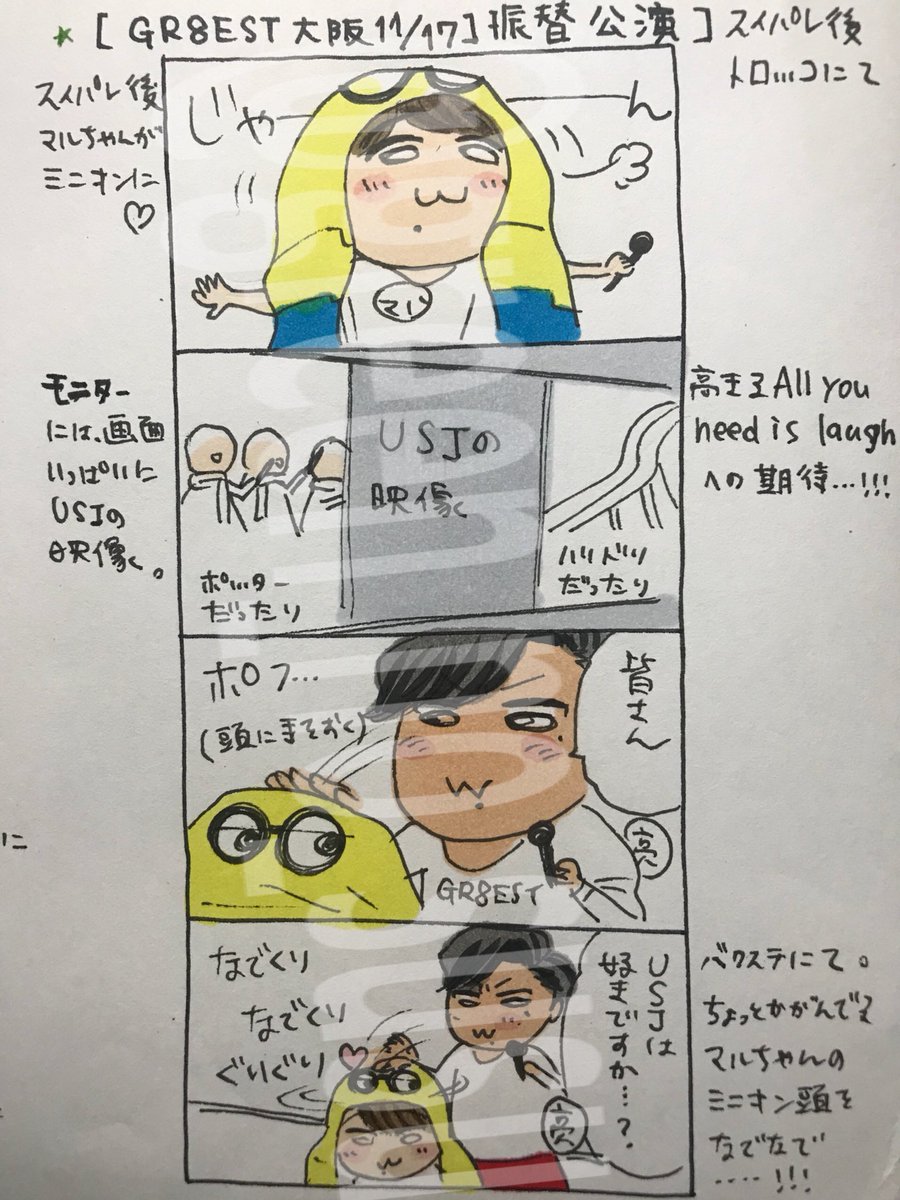 ★ [ GR8EST 大阪 11/17] 振替 公演 ] スイパレ後
トロッコにて
スイパレ後
マルちゃんが
ミニオンに
♡
じゃーん
マル
モニター
には、画面
いっぱいに
USJの
映像。
USJの
映像
ポッター
だったり
ハリドリ
だったり
高まるAll you
need is laugh
への期待…!!!
ポフ…
(頭に手をおく)
皆さん
亮
GR8EST
に
なでくり
なでくり
ぐいぐい
USJは
好きですか…?
亮
バクステにて。
ちょっとかがんでる
マルちゃんの
ミニオン頭を
なでなで
‥‥!!!